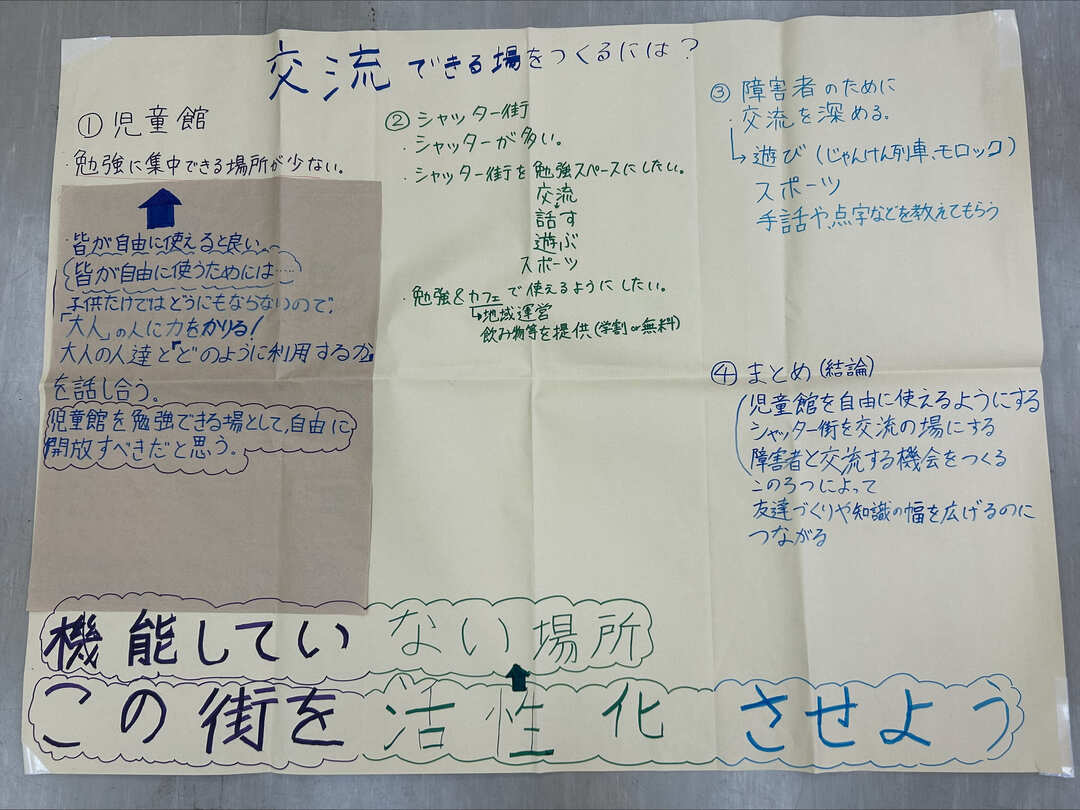 交流できる場をつくるには?
①児童館
・勉強に集中できる場所が少ない。
・皆が自由に使えると良い。
皆が自由に使うためには……
子供だけではどうにもならないので、
「大人」の人に力をかりる!
大人の人達と『どのように利用するか』
を話し合う。
児童館を勉強できる場として、自由に
開放すべきだと思う。
②シャッター街
・シャッターが多い。
・シャッター街を勉強スペースにしたい。
交流
話す
遊ぶ
スポーツ
・勉強&カフェで使えるようにしたい。
↳地域運営
飲み物等を提供(学割or無料)
③障害者のために
・交流を深める。
↳遊び(じゃんけん列車、モロック)
スポーツ
手話や、点字などを教えてもらう
④まとめ(結論)
児童館を自由に使えるようにする
シャッター街を交流の場にする
障害者と交流する機会をつくる
この3つによって
友達づくりや知識の幅を広げるのに
つながる
機能していない場所
この街を活性化させよう